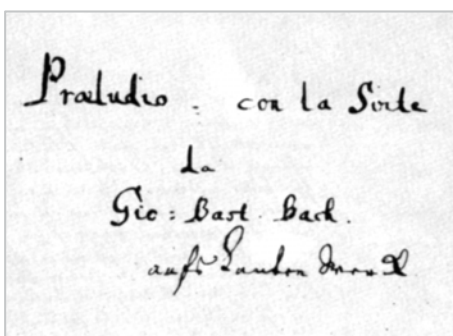 Præludio - con la Svite
da
Gio: Bast. Bach.
aufs Lauten Werck